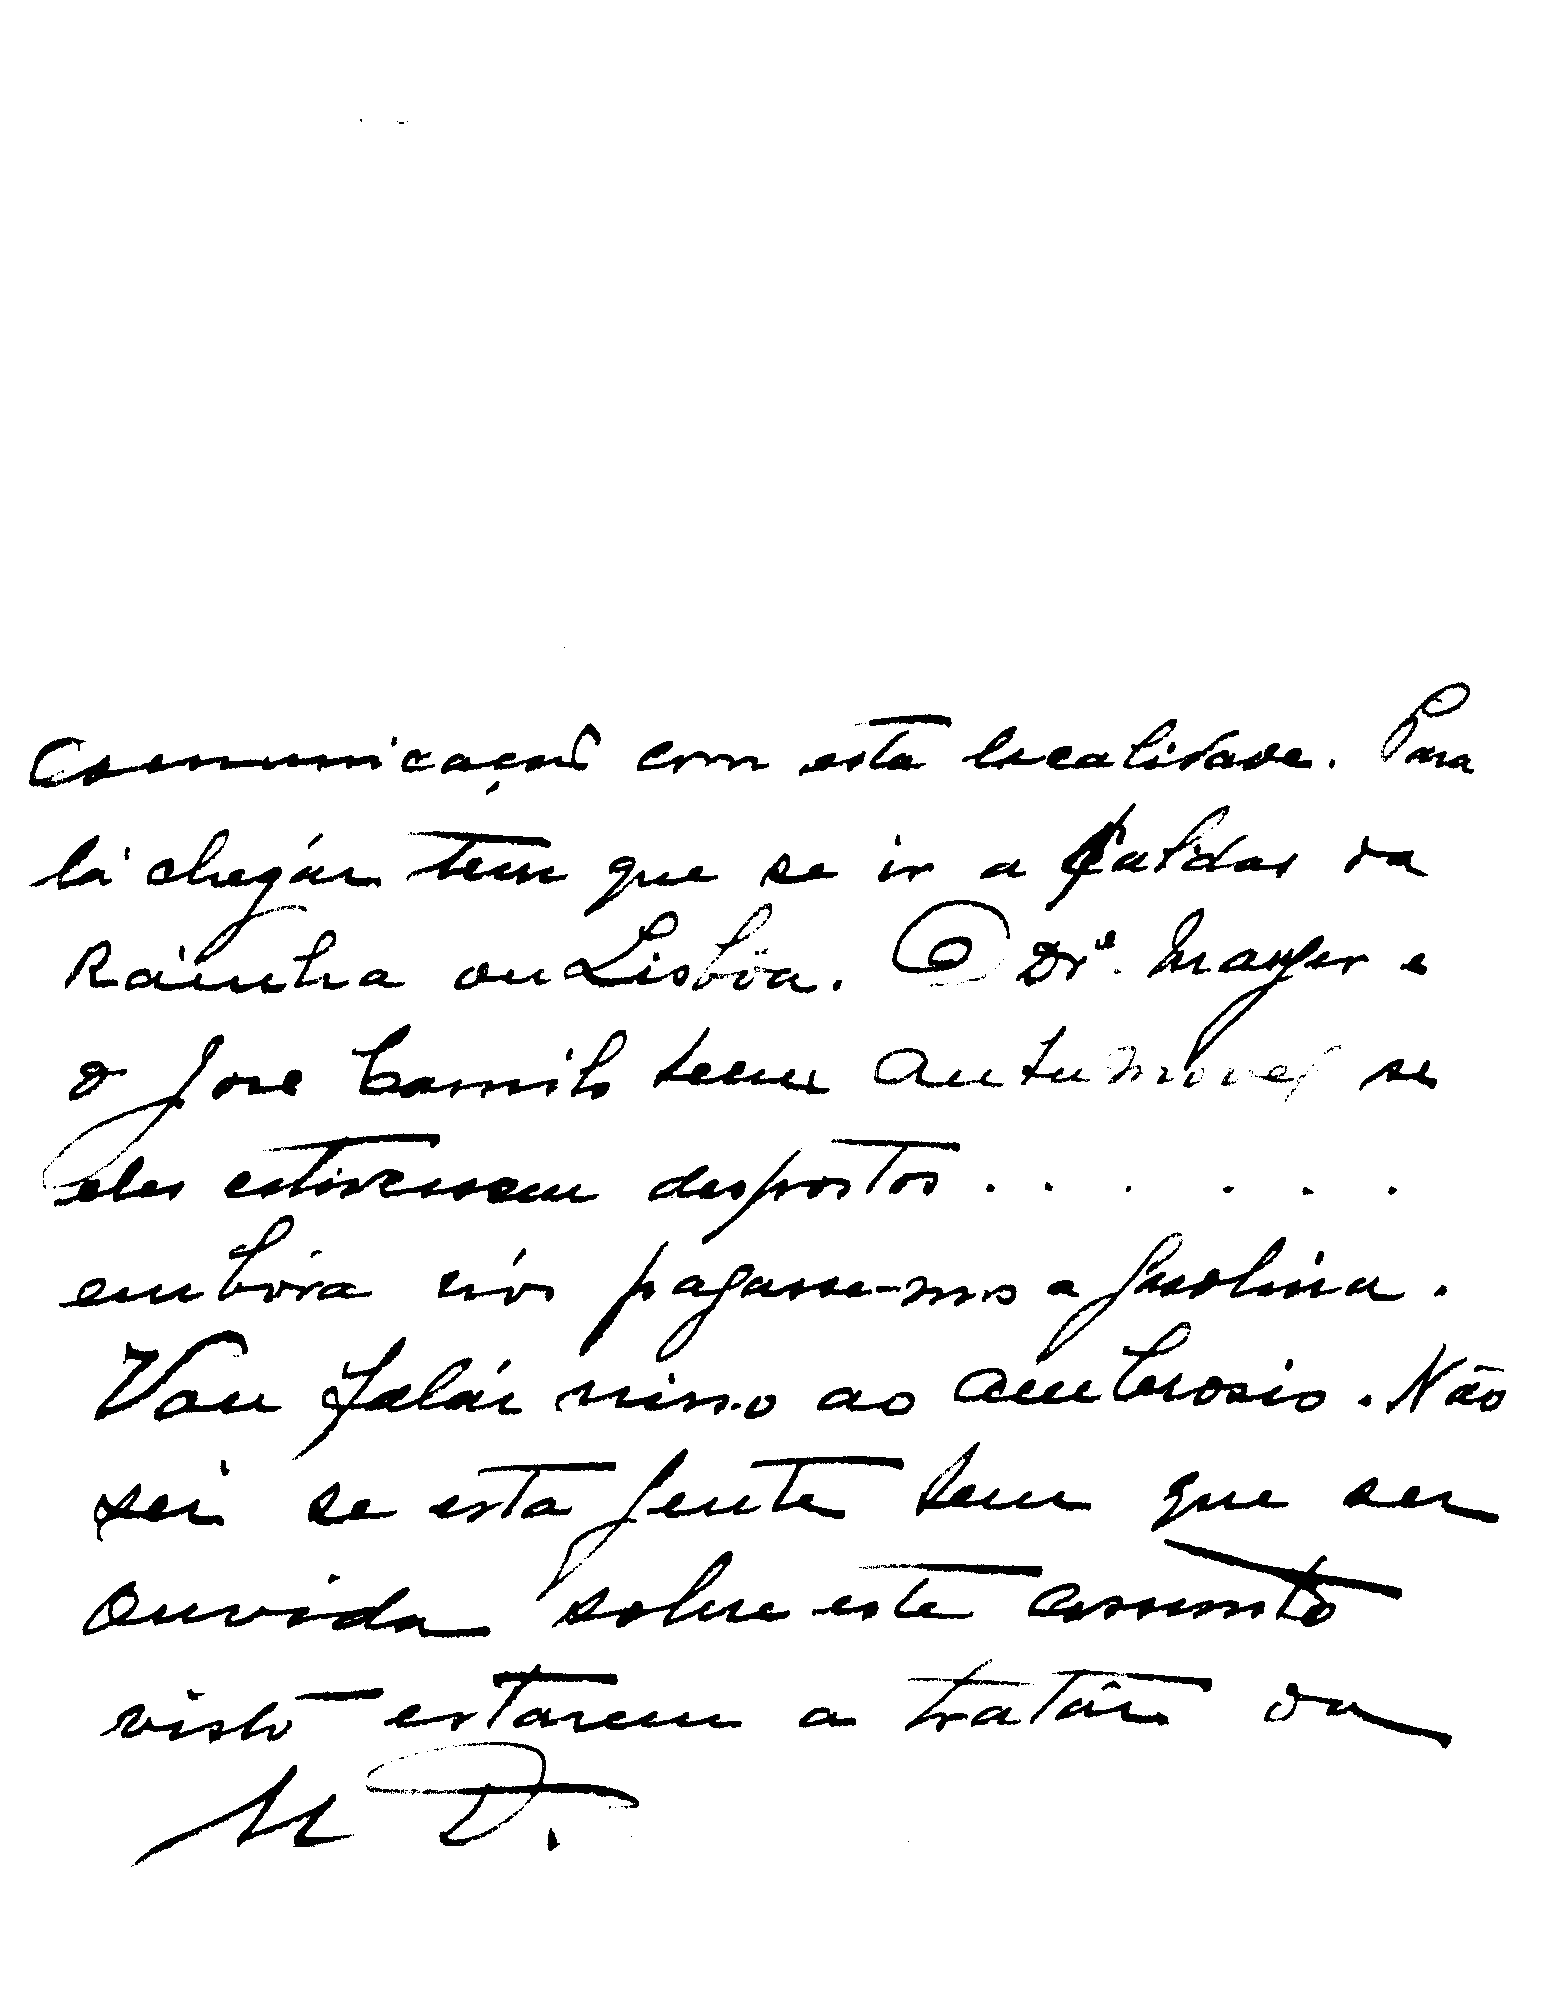 comunicação com esta localidade. Para
lá chegár tem que se ir a Caldas da
Ráinha ou Lisbôa. O Drº. Mayer e
o José Camilo teem automovel se
eles estivessem despostos . . . . . .
embóra nós pagasse-mos a gasolina.
Vou falár nisso ao Ambrosio. Não
sei se esta gente tem que ser
ouvida sobre este assunto
visto estarem a tratár da
M D.